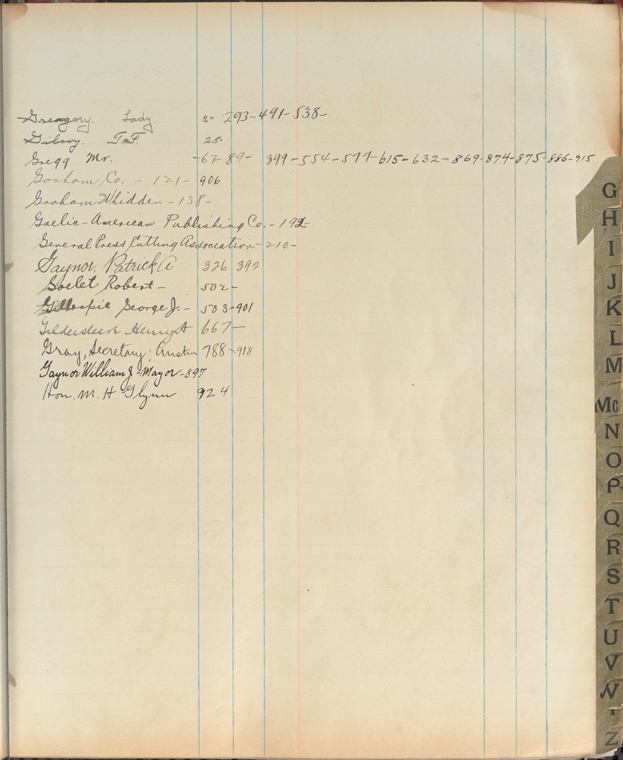 Greagory. Lady. 8- 293-491-538-
Gilroy. T.F. 25-
Gregg Mr. -67-89- 399-554-577-615-632-869-874-875-886-915
Gorham Co. - 121- 906
Graham Whidden - 138-
Gaelic-American Publishing Co. - 192-
General Press Cutting Association - 210-
Gaynor, Patrick A 326 392
Goelet Robert - 502-
Gillespie George J. - 533-901
Gildersleeve Henry A 667-
Gray, Secretary; Austin 788-918
Gaynor William J - Mayor - 897
Hon. M. H Glynn 924
G
H
I
J
K
L
M
Mc
N
O
P
Q
R
S
T
U
V
W
Z